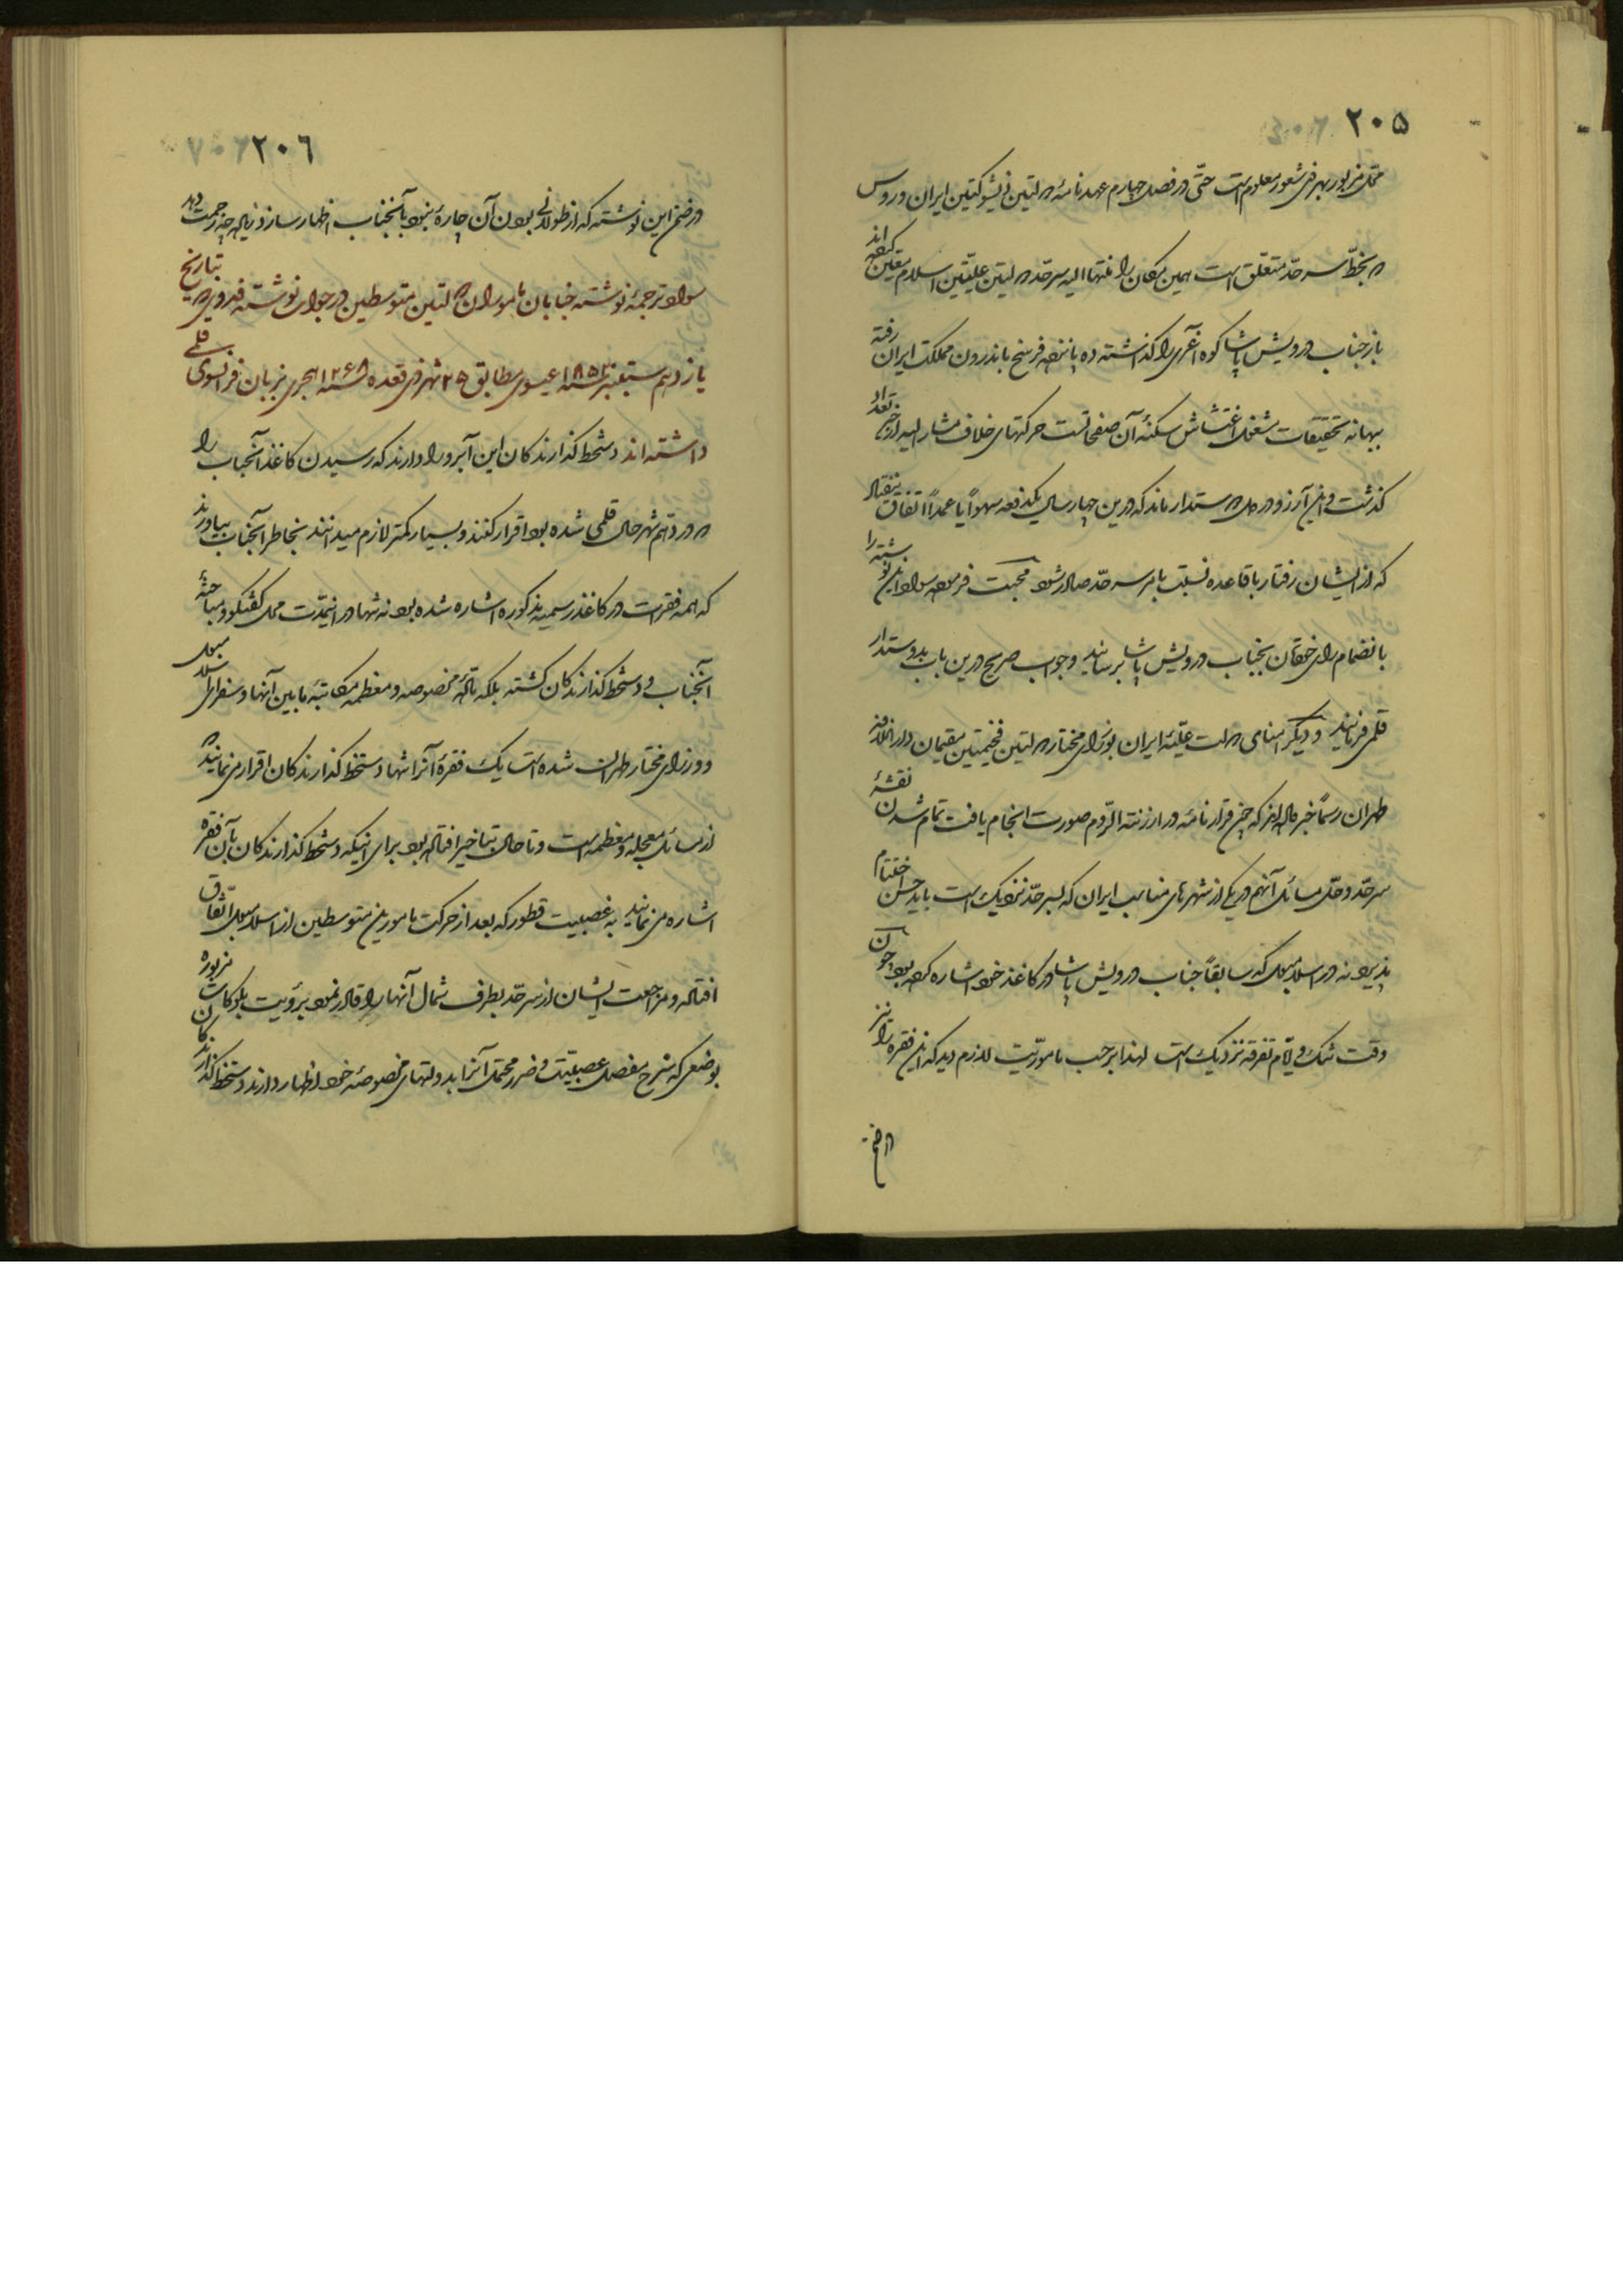 ۲۰۵
محل مزبور بهر ذی شعور معلوم است حتّی در فصل چهارم عهدنامهٔ دولتین ذیشوکتین ایران و روس
که بخطّ سرحدّ متعلق است همین مکان را منتها الیه سرحدّ دولتین علیّتین اسلام معیّن کرده‌اند
باز جناب درویش پاشا کوه آغری را گذاشته ده پانزده فرسخ باندرون مملکت ایران رفته
ببهانه تحقیقات مشغول اغتشاش سکنهٔ آن صفحاتست حرکتهای خلاف مشار الیه از حدّ تعداد
گذشت و این آرزو در دل دوستدار ماند که درین چهار سال یکدفعه سهواً یا عمداً اتفاق نیفتاد
که از ایشان رفتار با قاعده نسبت بامر سرحدّ صادر شود محبت فرموده سواد این نوشته را
بانضمام رای خودتان بجناب درویش پاشا برسانید و جواب صریح درین باب بدوستدار
قلمی فرمایند و دیگر امنای دولت علیّهٔ ایران بوزرای مختار دولتین فخیمتین مقیمان دار الخلافه
طهران رسماً خبر داده‌اند که چنین قرارنامه در ارزنة الرّوم صورت انجام یافت تمام شدن نقشهٔ
سرحدّ و حلّ مسائل آنهم در یکی از شهرهای مناسب ایران که بسرحدّ نزدیک است باید حسن اختتام
پذیرد نه در اسلامبول که سابقاً جناب درویش پاشا در کاغذ خود اشاره کرده بود چون
وقت تنگ و ایّام تفرقه نزدیک است لهذا بر حسب مأموریّت لازم دید که این فقره را نیز
در ضمن
۲۰۶
در ضمن این نوشته که از طولانی بودن آن چارهٔ نبود بآنجناب اظهار سازد زیاده چه زحمت دهد
سواد ترجمهٔ نوشته جنابان مأموران دولتین متوسطین در جواب نوشته فدوی که بتاریخ
یازدهم سپتمبر سنه ۱۸۵۲ عیسوی مطابق ۲۵ شهر ذی قعده سنه ۱۲۶۸ هجری بزبان فرانسوی قلمی
داشته‌اند دستخط گذارندگان این آبرو را دارند که رسیدن کاغذ آنجناب را
که در دهم شهر حال قلمی شده بود اقرار کنند و بسیار کمتر لازم میدانند بخاطر آنجناب بیاورند
که همه فقرات در کاغذ رسمیه مذکوره اشاره شده بود نه تنها در اینمدّت محل گفتگو و مباحثهٔ
آنجناب و دستخط گذارندگان گشته بلکه مادّهٔ مخصوصه و معظمه مکاتبهٔ مابین آنها و سفرای اسلامبول
و وزرای مختار طهران شده است یک فقرهٔ آنرا تنها دستخط گذارندگان اقرار می نمایند که
از مسائل معجله و معظمه است و تا حال بتاخیر افتاده بود برای اینکه دستخط گذارندگان بآن فقره
اشاره می نمایند به غصبیت قطور که بعد از حرکت مأمورین متوسطین از اسلامبول اتّفاق
افتاده و مراجعت ایشان از سرحدّ بطرف شمال آنها را قادر نمود برؤیت بلوکات مزبوره
بوضعی که شرح مفصل غصبیّت و ضرر محتمل آنرا بدولتهای مخصوصهٔ خود اظهار دارند دستخط گذارندگان